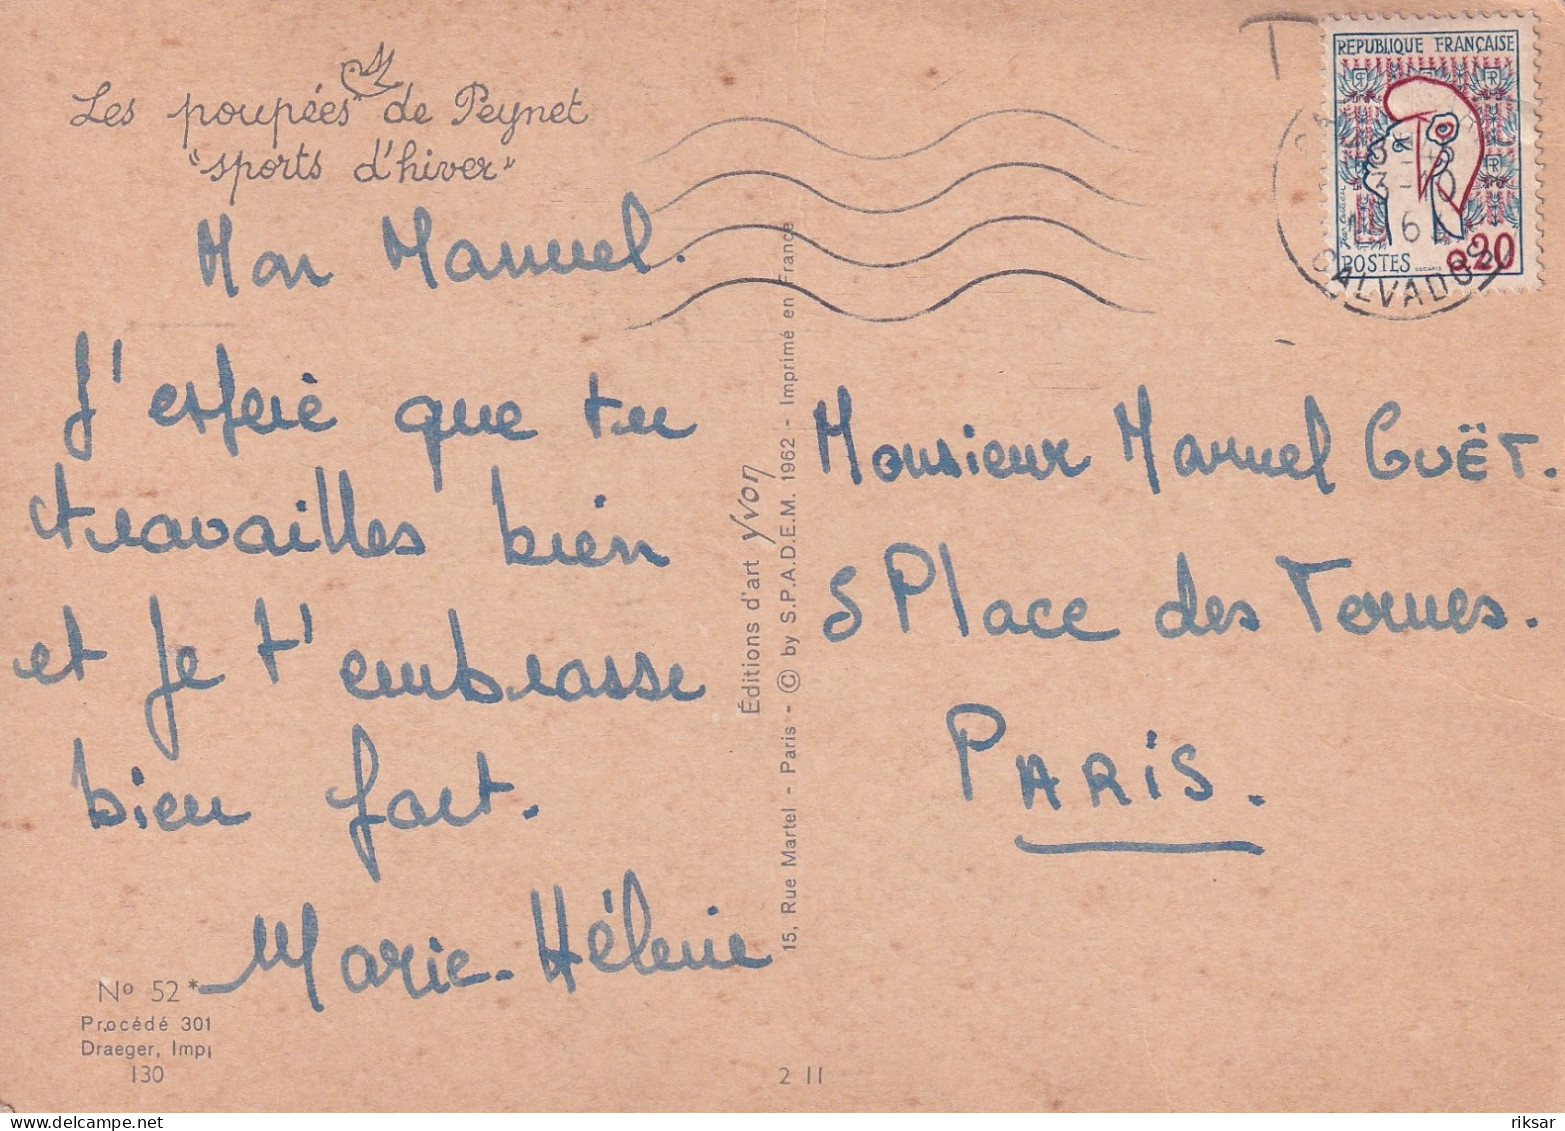 Les poupées de Peynet
"sports d'hiver"
Mon Manuel.
J'espère que tu
travailles bien
et je t'embrasse
bien fort.
Marie-Hélène
No 52*
Procédé 301
Draeger, Imp.
130
Éditions d'art yvon
15, Rue Martel - Paris - © by S.P.A.D.E.M. 1962 - Imprimé en France
2 11
REPUBLIQUE FRANÇAISE
POSTES
0.20
CALVADOS
Monsieur Manuel GUËT.
5 Place des Ternes.
PARIS.
riksar